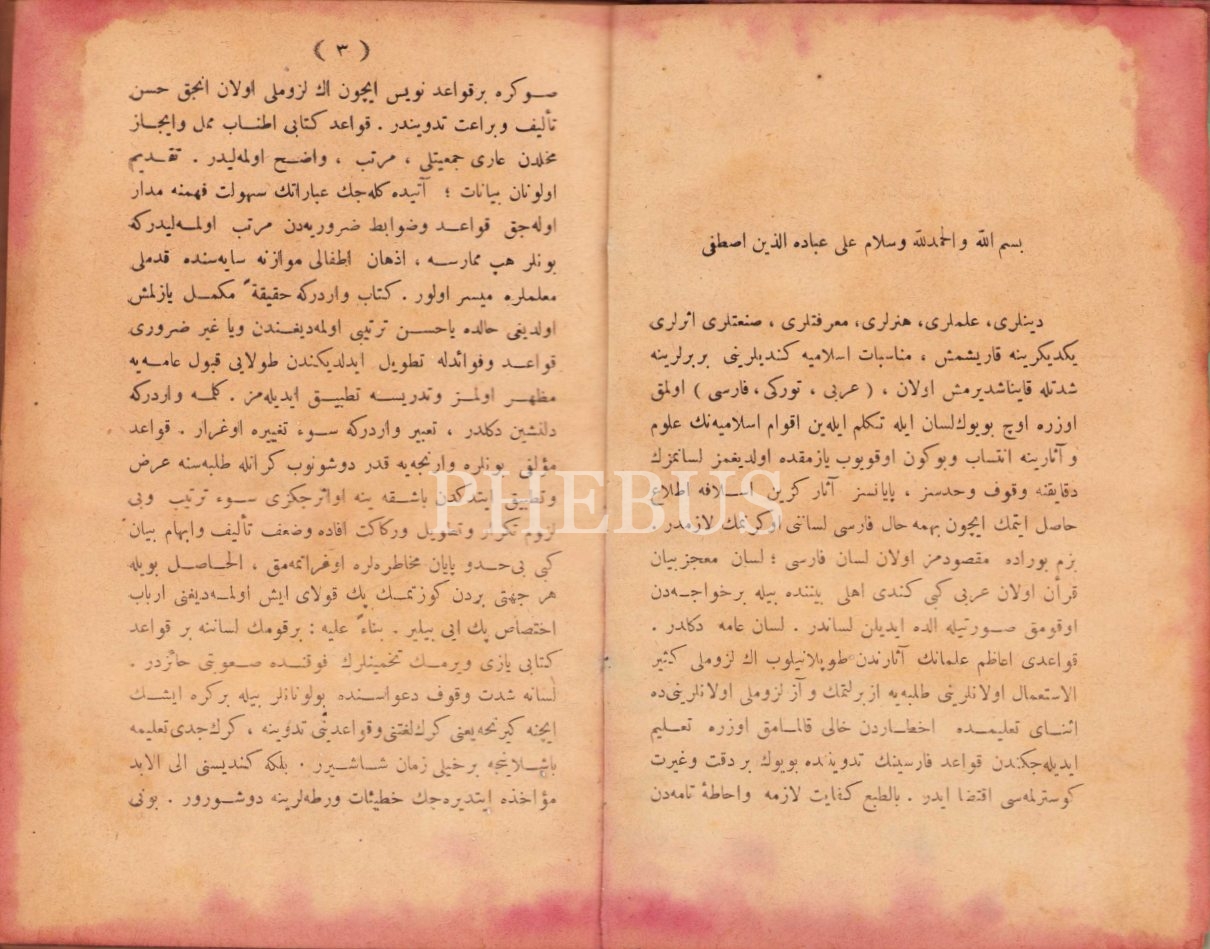 بسم الله والحمدلله وسلام على عباده الذين اصطفى
دینلری، علملری، هنرلری، معرفتلری ، صنعتلری اثرلری
یکدیکرینه قاریشمش ، مناسبات اسلامیه کندیلرینی بربرلرینه
شدتله قایناشدیرمش اولان ، ( عربی ، تورکی ، فارسی ) اولمق
اوزره اوچ بویوك لسان ایله تکلم ایله‌ین اقوام اسلامیه‌نك علوم
و آثارینه انتساب وبوکون اوقویوب یازمقده اولدیغمز لسانمزك
دقایقنه وقوف وحدسز ، پایانسز آثار کزین اسلافه اطلاع
حاصل ایتمك ایچون بهمه حال فارسی لساننی اوکرنمك لازمدر .
بزم بوراده مقصودمز اولان لسان فارسی ؛ لسان معجزبیان
قرأن اولان عربی کبی کندی اهلی بیننده بیله برخواجه‌دن
اوقومق صورتیله الده ایدیلن لساندر . لسان عامه دکلدر .
قواعدی اعاظم علمانك آثارندن طوپلانیلوب اك لزوملی کثیر
الاستعمال اولانلرینی طلبه‌یه ازبرلتمك و آز لزوملی اولانلرینی‌ده
اثنای تعلیمده اخطاردن خالی قالمامق اوزره تعلیم
ایدیله‌جکندن قواعد فارسینك تدویننده بویوك بر دقت وغیرت
کوسترلمه‌سی اقتضا ایدر . بالطبع کفایت لازمه واحاطهٔ تامه‌دن
( ٣ )
صوکره برقواعد نویس ایچون اك لزوملی اولان انجق حسن
تألیف وبراعت تدویندر . قواعد کتابی اطناب ممل وایجاز
مخلدن عاری جمعیتلی ، مرتب ، واضح اولمه‌لیدر . تقدیم
اولونان بیانات ؛ آتیده کله‌جك عباراتك سهولت فهمنه مدار
اوله‌جق قواعد وضوابط ضروریه‌دن مرتب اولمه‌لیدرکه
بونلر هپ ممارسه ، اذهان اطفالی موازنه سایه‌سنده قدملی
معلملره میسر اولور . کتاب واردرکه حقیقةً مکمل یازلمش
اولدیغی حالده یاحسن ترتیبی اولمه‌دیغندن ویا غیر ضروری
قواعد وفوائدله تطویل ایدلدیکندن طولایی قبول عامه‌یه
مظهر اولمز وتدریسه تطبیق ایدیله‌مز . کلمه واردرکه
دلنشین دکلدر ، تعبیر واردرکه سوء تغییره اوغرار . قواعد
مؤلفی بونلره وارنجه‌یه قدر دوشونوب کرانله طلبه‌سنه عرض
وتطبیق ایتدکدن باشقه ینه اواثرجکزی سوء ترتیب وبی
لزوم تکرار وتطویل ورکاکت افاده وضعف تألیف وابهام بیان
کبی بی‌حدو پایان مخاطره‌لره اوغراتمه‌مق ، الحاصل بویله
هر جهتی بردن کوزتمك پك قولای ایش اولمه‌دیغنی ارباب
اختصاص پك ایی بیلیر . بناءً علیه : برقومك لساننه بر قواعد
کتابی یازی ویرمك تخمینلرك فوقنده صعوبتی حائزدر .
لسانه شدت وقوف دعواسنده بولونانلر بیله برکره ایشك
ایچنه کیرنجه یعنی کرك لغتنی وقواعدینی تدوینه ، کرك جدی تعلیمه
باشلاینجه برخیلی زمان شاشیرر . بلکه کندیسنی الی الابد
مؤاخذه ایتدیره‌جك خطیئات ورطه‌لرینه دوشورور . بونی